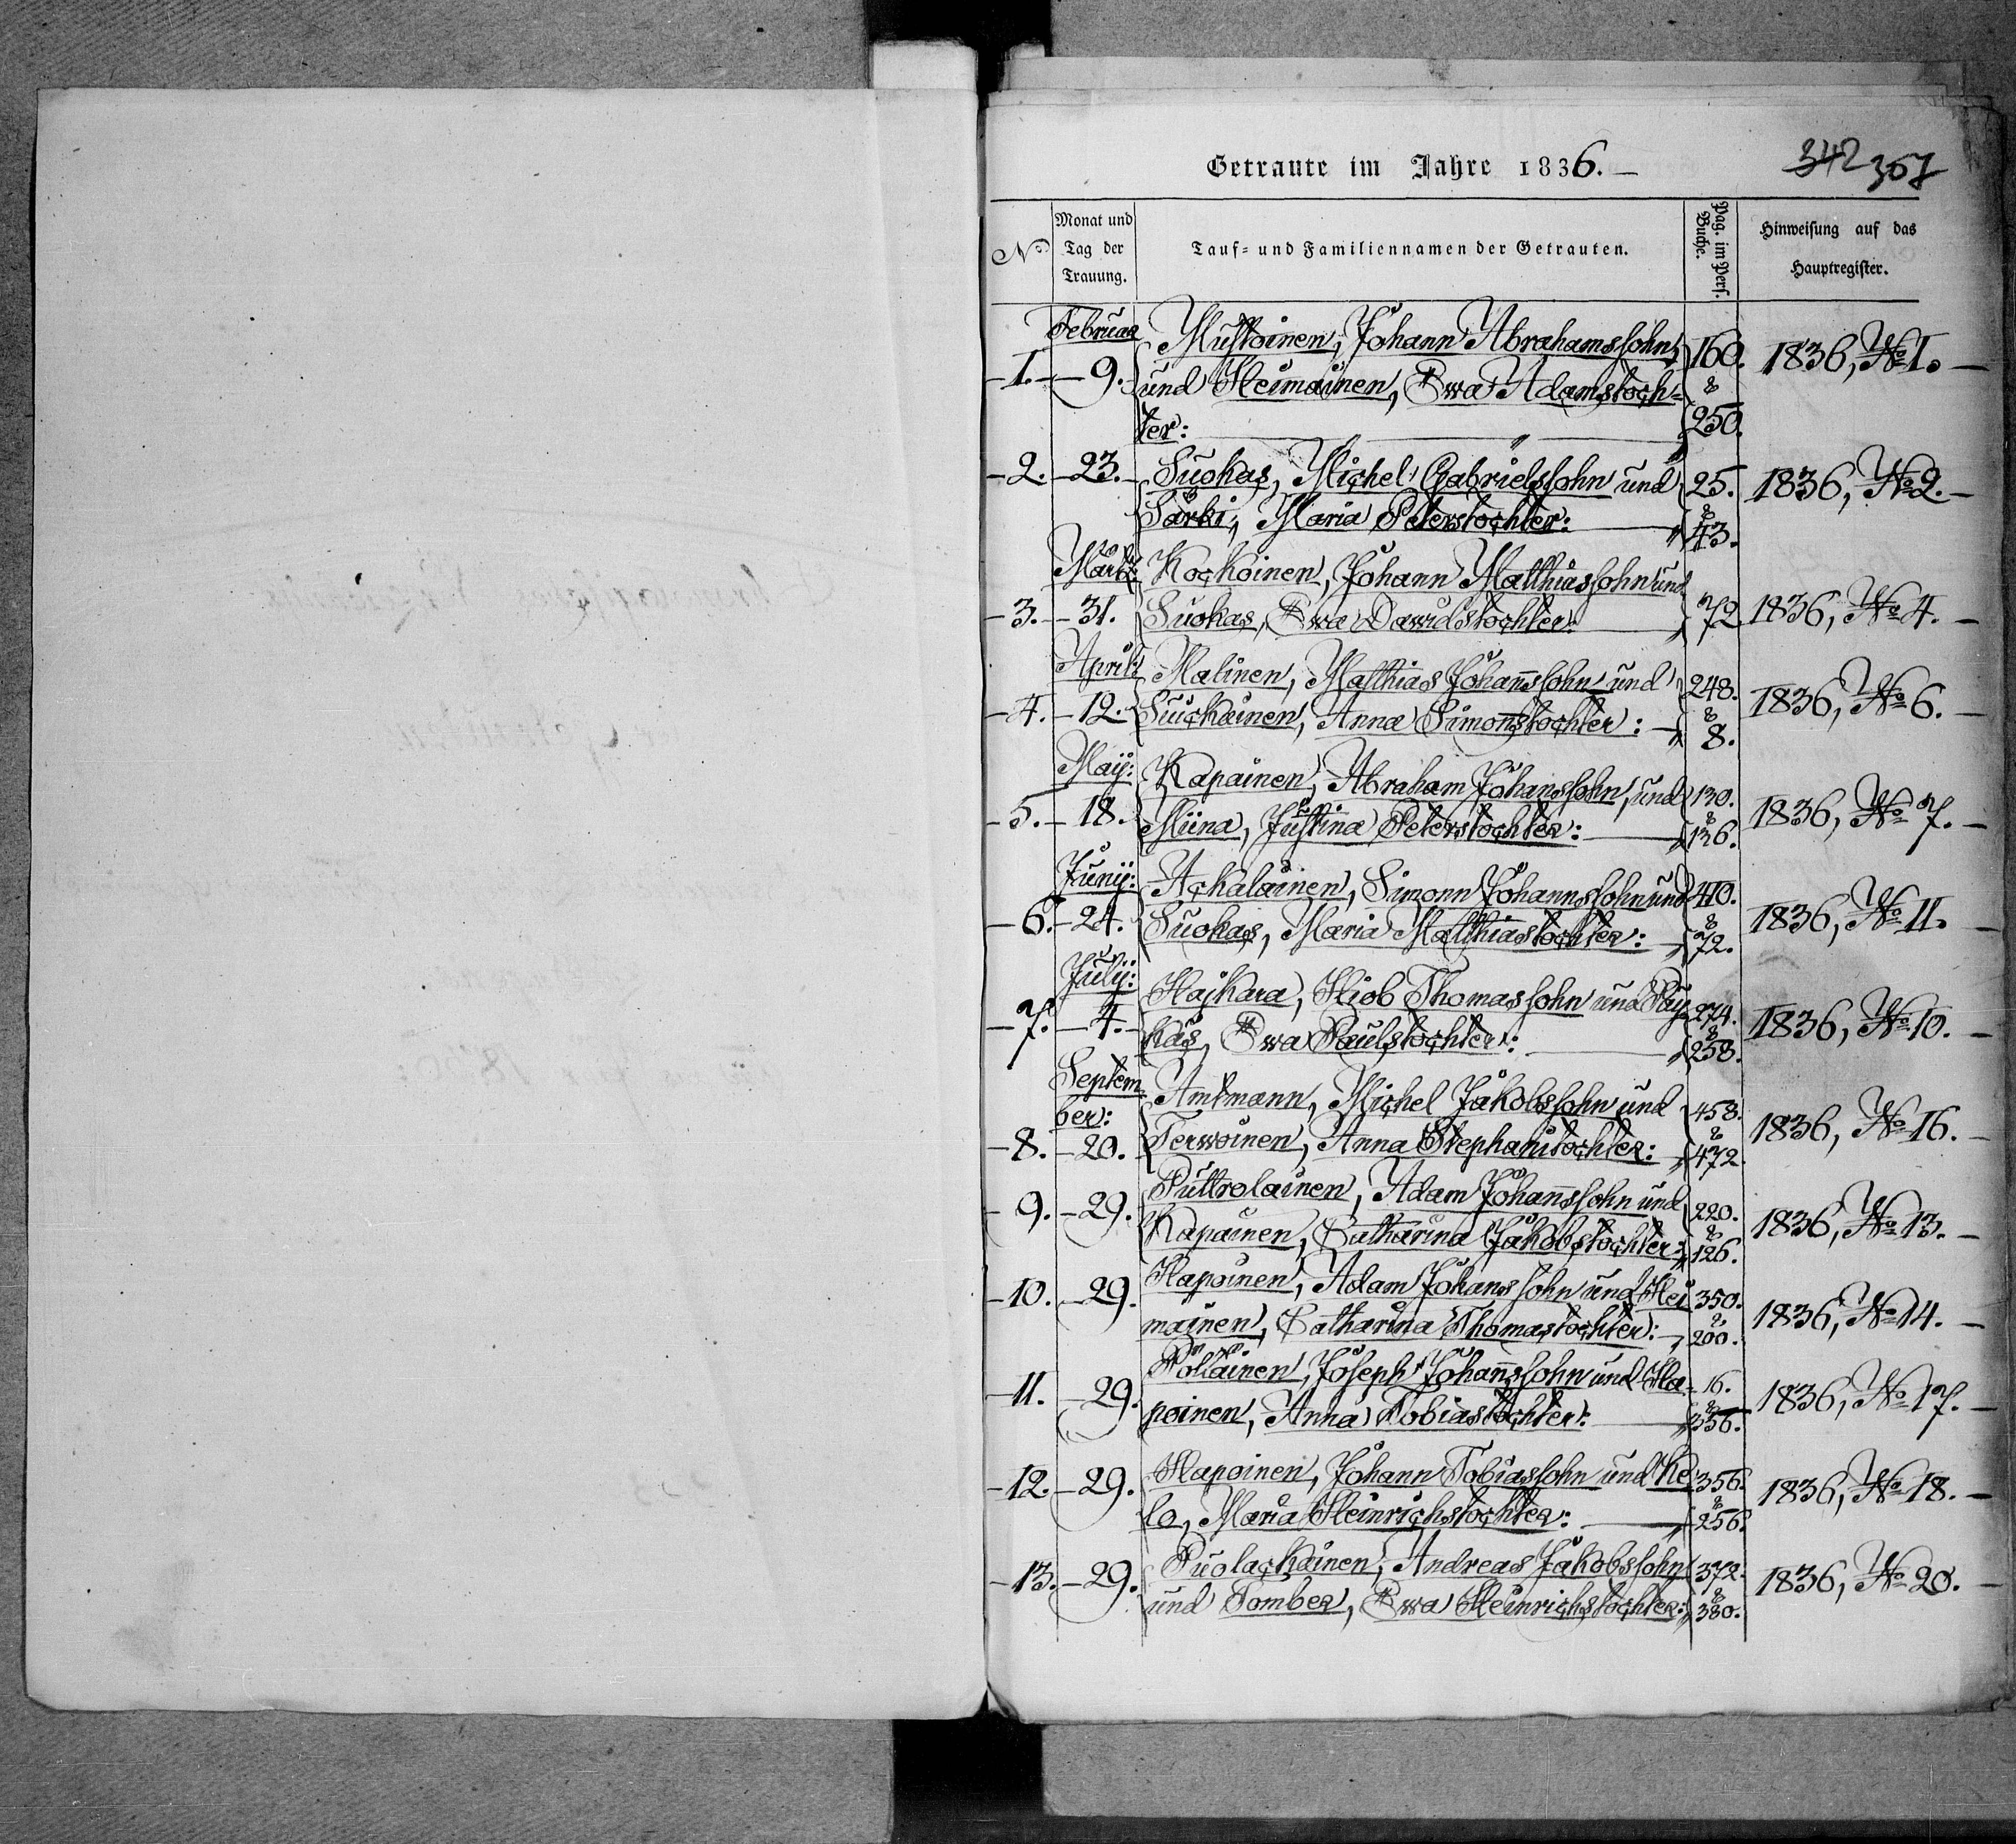 Getraute im Jahre 1836. —
342 367
No
Monat und
Tag der
Trauung.
Tauf- und Familiennamen der Getrauten.
Pag. im Pers.
Buche.
Hinweisung auf das
Hauptregister.
Februar Mustoinen, Johann Abrahamssohn, 160. 1836, No 1. —
— 1. — 9. und Heimainen, Ewa Adamstoch- &
ter: 250.
— 2. — 23. — Suokas, Michel Gabrielssohn und 25. 1836, No 2. —
Särki, Maria Peterstochter: & 43.
März Kockoinen, Johann Matthiassohn und
— 3. — 31. Suokas, Ewa Dawidstochter: 72 1836, No 4. —
April: Malinen, Matthias Johannssohn und 248. 1836, No 6. —
— 4. — 12. Suickainen, Anna Simonstochter: — & 8.
Maij: Kapainen, Abraham Johanssohn, und 130. 1836, No 7. —
— 5. — 18. Miina, Justina Peterstochter: & 136.
Junij: Ackalainen, Simonn Johannssohn und 410. 1836, No 11. —
— 6. — 24. Suokas, Maria Matthiastochter: — & 72.
Julij: Hajkara, Hiob Thomassohn und Puy- 274. 1836, No 10. —
— 7. — 4. — kas, Ewa Paulstochter: & 258.
Septem- Amtmann, Michel Jakobssohn und 458. 1836, No 16. —
ber: &
— 8. — 20. Terwoinen, Anna Stephanstochter: — 472.
Puttrolainen, Adam Johannssohn und 220. 1836, No 13. —
— 9. — 29. Kapainen, Catharina Jakobstochter: & 126.
— 10. — 29. Hapoinen, Adam Johanssohn und Hei- 350. 1836, No 14. —
mainen, Catharina Thomastochter: — & 200.
Pölläinen, Joseph Johannssohn und Ha- 16. 1836, No 17. —
— 11. — 29. poinen, Anna Tobiastochter: & 356.
— 12. — 29. Hapoinen, Johann Tobiassohn und Ke- 356. 1836, No 18. —
lo, Maria Heinrichstochter: & 256.
— 13. — 29. Puolackainen, Andreas Jakobssohn 372. 1836, No 20. —
und Tomber, Ewa Heinrichstochter: & 380.